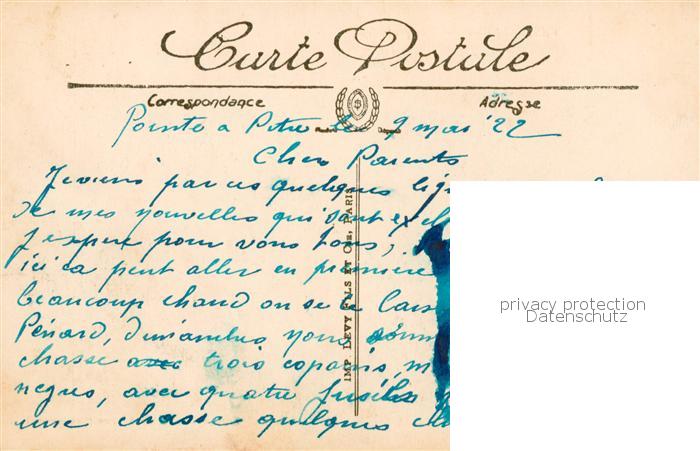 Carte Postale
Correspondance Adresse
Pointe a Pitre le 9 mai 22
Chers Parents
Je viens par ces quelques lig
de mes nouvelles qui sont excell
J'espère pour vous tous,
ici ca peut aller en première
beaucoup chaud on se
Pénard, dimanche nous
chasse avec trois copains, m
negres, avec quatre fusils
une chasse quelques
IMP LEVY FILS ET Cie, PARIS
privacy protection
Datenschutz